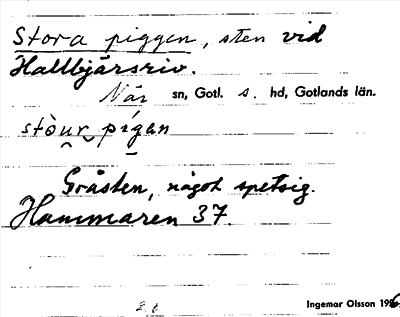 Stora piggen, sten vid
Hallbjärsriv.
När sn, Gotl. s. hd, Gotlands län.
stòur pígan
Gråsten, något spetsig.
Hammaren 37.
Ingemar Olsson 196